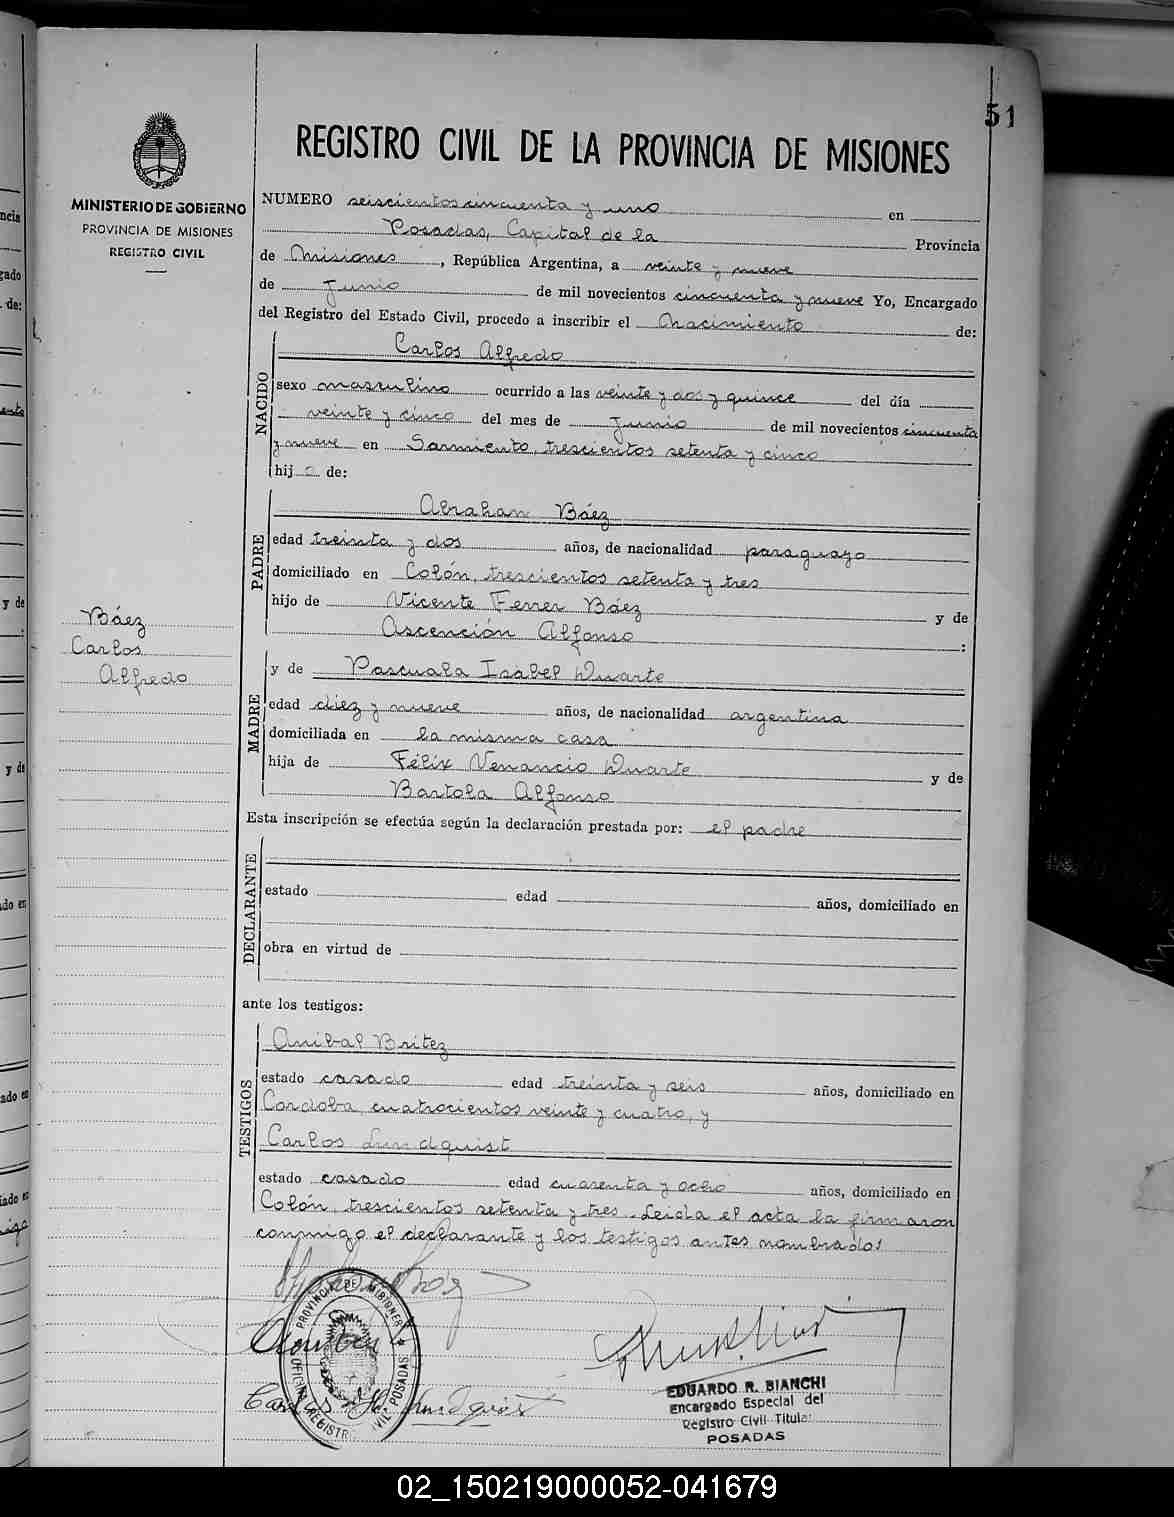 51
REGISTRO CIVIL DE LA PROVINCIA DE MISIONES
MINISTERIO DE GOBIERNO
PROVINCIA DE MISIONES
REGISTRO CIVIL
NUMERO seiscientos cincuenta y uno en
Posadas, Capital de la Provincia
de Misiones, República Argentina, a veinte y nueve
de Junio de mil novecientos cincuenta y nueve Yo, Encargado
del Registro del Estado Civil, procedo a inscribir el Nacimiento de:
NACIDO
Carlos Alfredo
sexo masculino ocurrido a las veinte y dos y quince del día
veinte y cinco del mes de Junio de mil novecientos cincuenta
y nueve en Sarmiento, trescientos setenta y cinco
hijo de:
PADRE
Abrahan Báez
edad treinta y dos años, de nacionalidad paraguayo
domiciliado en Colón, trescientos setenta y tres
hijo de Vicente Ferrer Báez y de
Ascención Alfonso :
Báez
Carlos
Alfredo
MADRE
y de Pascuala Isabel Duarte
edad diez y nueve años, de nacionalidad argentina
domiciliada en la misma casa
hija de Félix Venancio Duarte y de
Bartola Alfonso
Esta inscripción se efectúa según la declaración prestada por: el padre
DECLARANTE
estado edad años, domiciliado en
obra en virtud de
ante los testigos:
TESTIGOS
Anibal Britez
estado casado edad treinta y seis años, domiciliado en
Cordoba, cuatrocientos veinte y cuatro, y
Carlos Lundquist
estado casado edad cuarenta y ocho años, domiciliado en
Colón, trescientos setenta y tres. Leida el acta la firmaron
conmigo el declarante y los testigos antes nombrados
PROVINCIA DE MISIONES
POSADAS
EDUARDO R. BIANCHI
Encargado Especial del
Registro Civil Titular
POSADAS
02_150219000052-041679